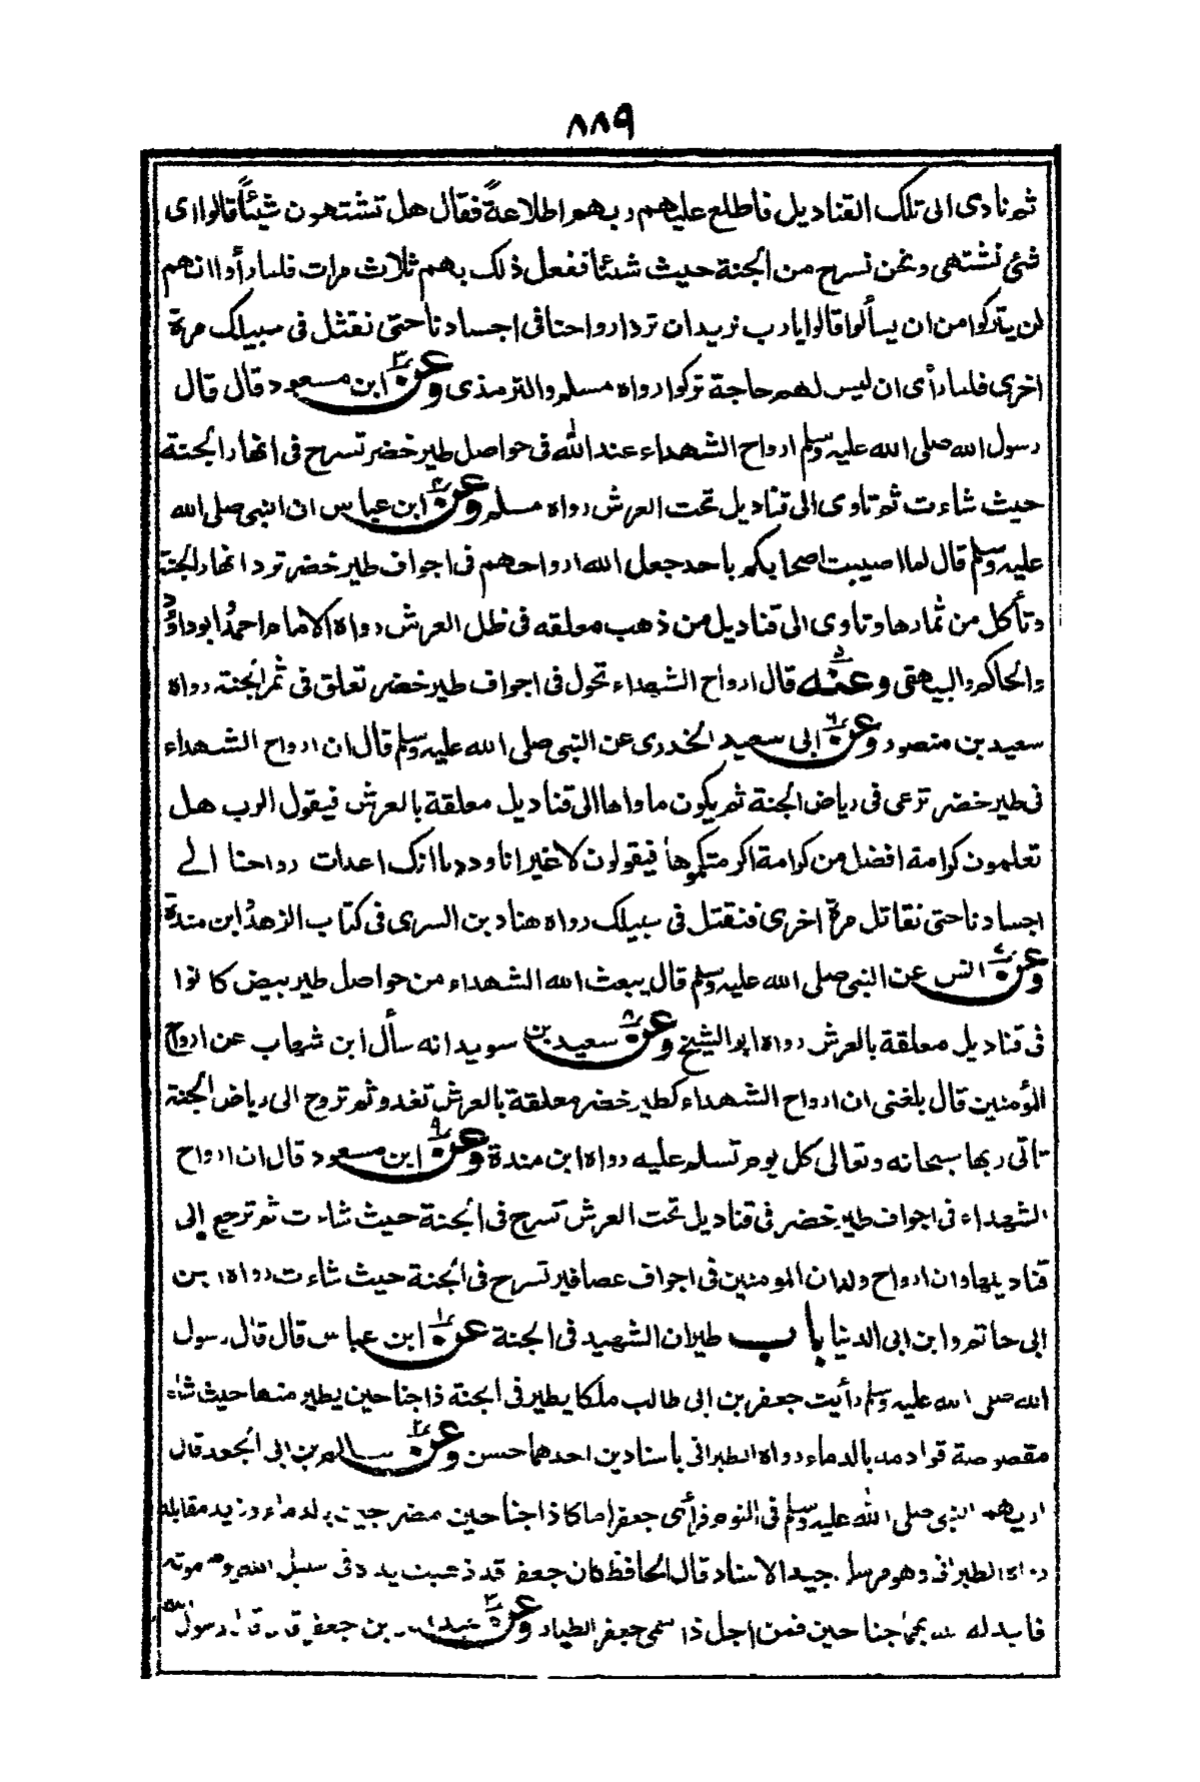 ٨٨٩
ثم نادى الى تلك القناديل فاطلع عليهم ربهم اطلاعةً فقال هل تشتهون شيئاً قالوا اى
شئ نشتهى ونحن نسرح من الجنة حيث شئنا ففعل ذلك بهم ثلاث مرات فلما رأوا انهم
لن يتركوا من ان يسألوا قالوا يا رب نريد ان ترد ارواحنا فى اجسادنا حتى نقتل فى سبيلك مرة
اخرى فلما رأى ان ليس لهم حاجة تركوا رواه مسلم والترمذى وعن ٣ ابن مسعود قال قال
رسول الله صلى الله عليه وسلم ارواح الشهداء عند الله فى حواصل طير خضر تسرح فى انهار الجنة
حيث شاءت ثم تاوى الى قناديل تحت العرش رواه مسلم وعن ٤ ابن عباس ان النبى صلى الله
عليه وسلم قال لما اصيبت اصحابكم باحد جعل الله ارواحهم فى اجواف طير خضر ترد انهار الجنة
وتأكل من ثمارها وتاوى الى قناديل من ذهب معلقه فى ظل العرش رواه الامام احمدُ ابو داؤد
والحاكم والبيهقى وعنه ٥ قال ارواح الشهداء تحول فى اجواف طير خضر تعلق فى ثمر الجنة رواه
سعيد بن منصور وعن ٦ ابى سعيد الخدرى عن النبى صلى الله عليه وسلم قال ان ارواح الشهداء
فى طير خضر ترعى فى رياض الجنة ثم يكون ماواها الى قناديل معلقة بالعرش فيقول الرب هل
تعلمون كرامة افضل من كرامة اكرمتكموها فيقولون لا غير انا وددنا انك اعدات رواحنا الے
اجسادنا حتى نقاتل مرة اخرى فنقتل فى سبيلك رواه هناد بن السرى فى كتاب الزهدُ ابن مندة
وعن ٧ انس عن النبى صلى الله عليه وسلم قال يبعث الله الشهداء من حواصل طير بيض كانوا
فى قناديل معلقة بالعرش رواه ابو الشيخ وعن ٨ سعيد بن سويد انه سأل ابن شهاب عن ارواح
المؤمنين قال بلغنى ان ارواح الشهداء كطير خضر معلقة بالعرش تغدو ثم تروح الى رياض الجنة
تأتى ربها سبحانه وتعالى كل يوم تسلم عليه رواه ابن مندة وعن ٩ ابن مسعود قال ان ارواح
الشهداء فى اجواف طير خضر فى قناديل تحت العرش تسرح فى الجنة حيث شاءت ثم ترجع إلى
قناديلها وان ارواح ولدان المومنين فى اجواف عصافير تسرح فى الجنة حيث شاءت رواه ابن
ابى حاتم وابن ابى الدنيا باب طيران الشهيد فى الجنة عن ١ ابن عباس قال قال رسول
الله صلى الله عليه وسلم رأيت جعفر بن ابى طالب ملكا يطير فى الجنة ذا جناحين يطير منها حيث شاء
مقصوصة قوادمه بالدماء رواه الطبرانى باسنادين احدهما حسن وعن ٢ سالم بن ابى الجعد قال
اريهم النبى صلى الله عليه وسلم فى النوم فرأى جعفرا ملكا ذا جناحين مضرجين بالدماء وزيد مقابله
رواه الطبرانى وهو مرسل جيد الاسناد قال الحافظ كان جعفر قد ذهبت يده فى سبيل الله يوم موته
فابدله الله بهما جناحين فمن اجل ذا سمى جعفر الطيار وعن ٣ بن جعفر قال قال رسول الله